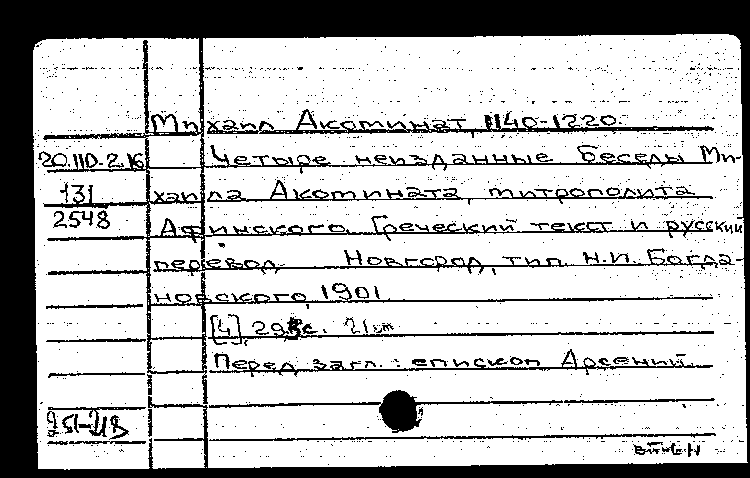 Михаил Акоминат, 1140-1220.
20.110.2.16 Четыре неизданные беседы Ми-
131 хаила Акомината, митрополита
2548 Афинского. Греческий текст и русский
перевод Новгород, тип. Н.И. Богда-
новского, 1901
[4], 29 с. 21 см
Перед загл.: епископ Арсений.